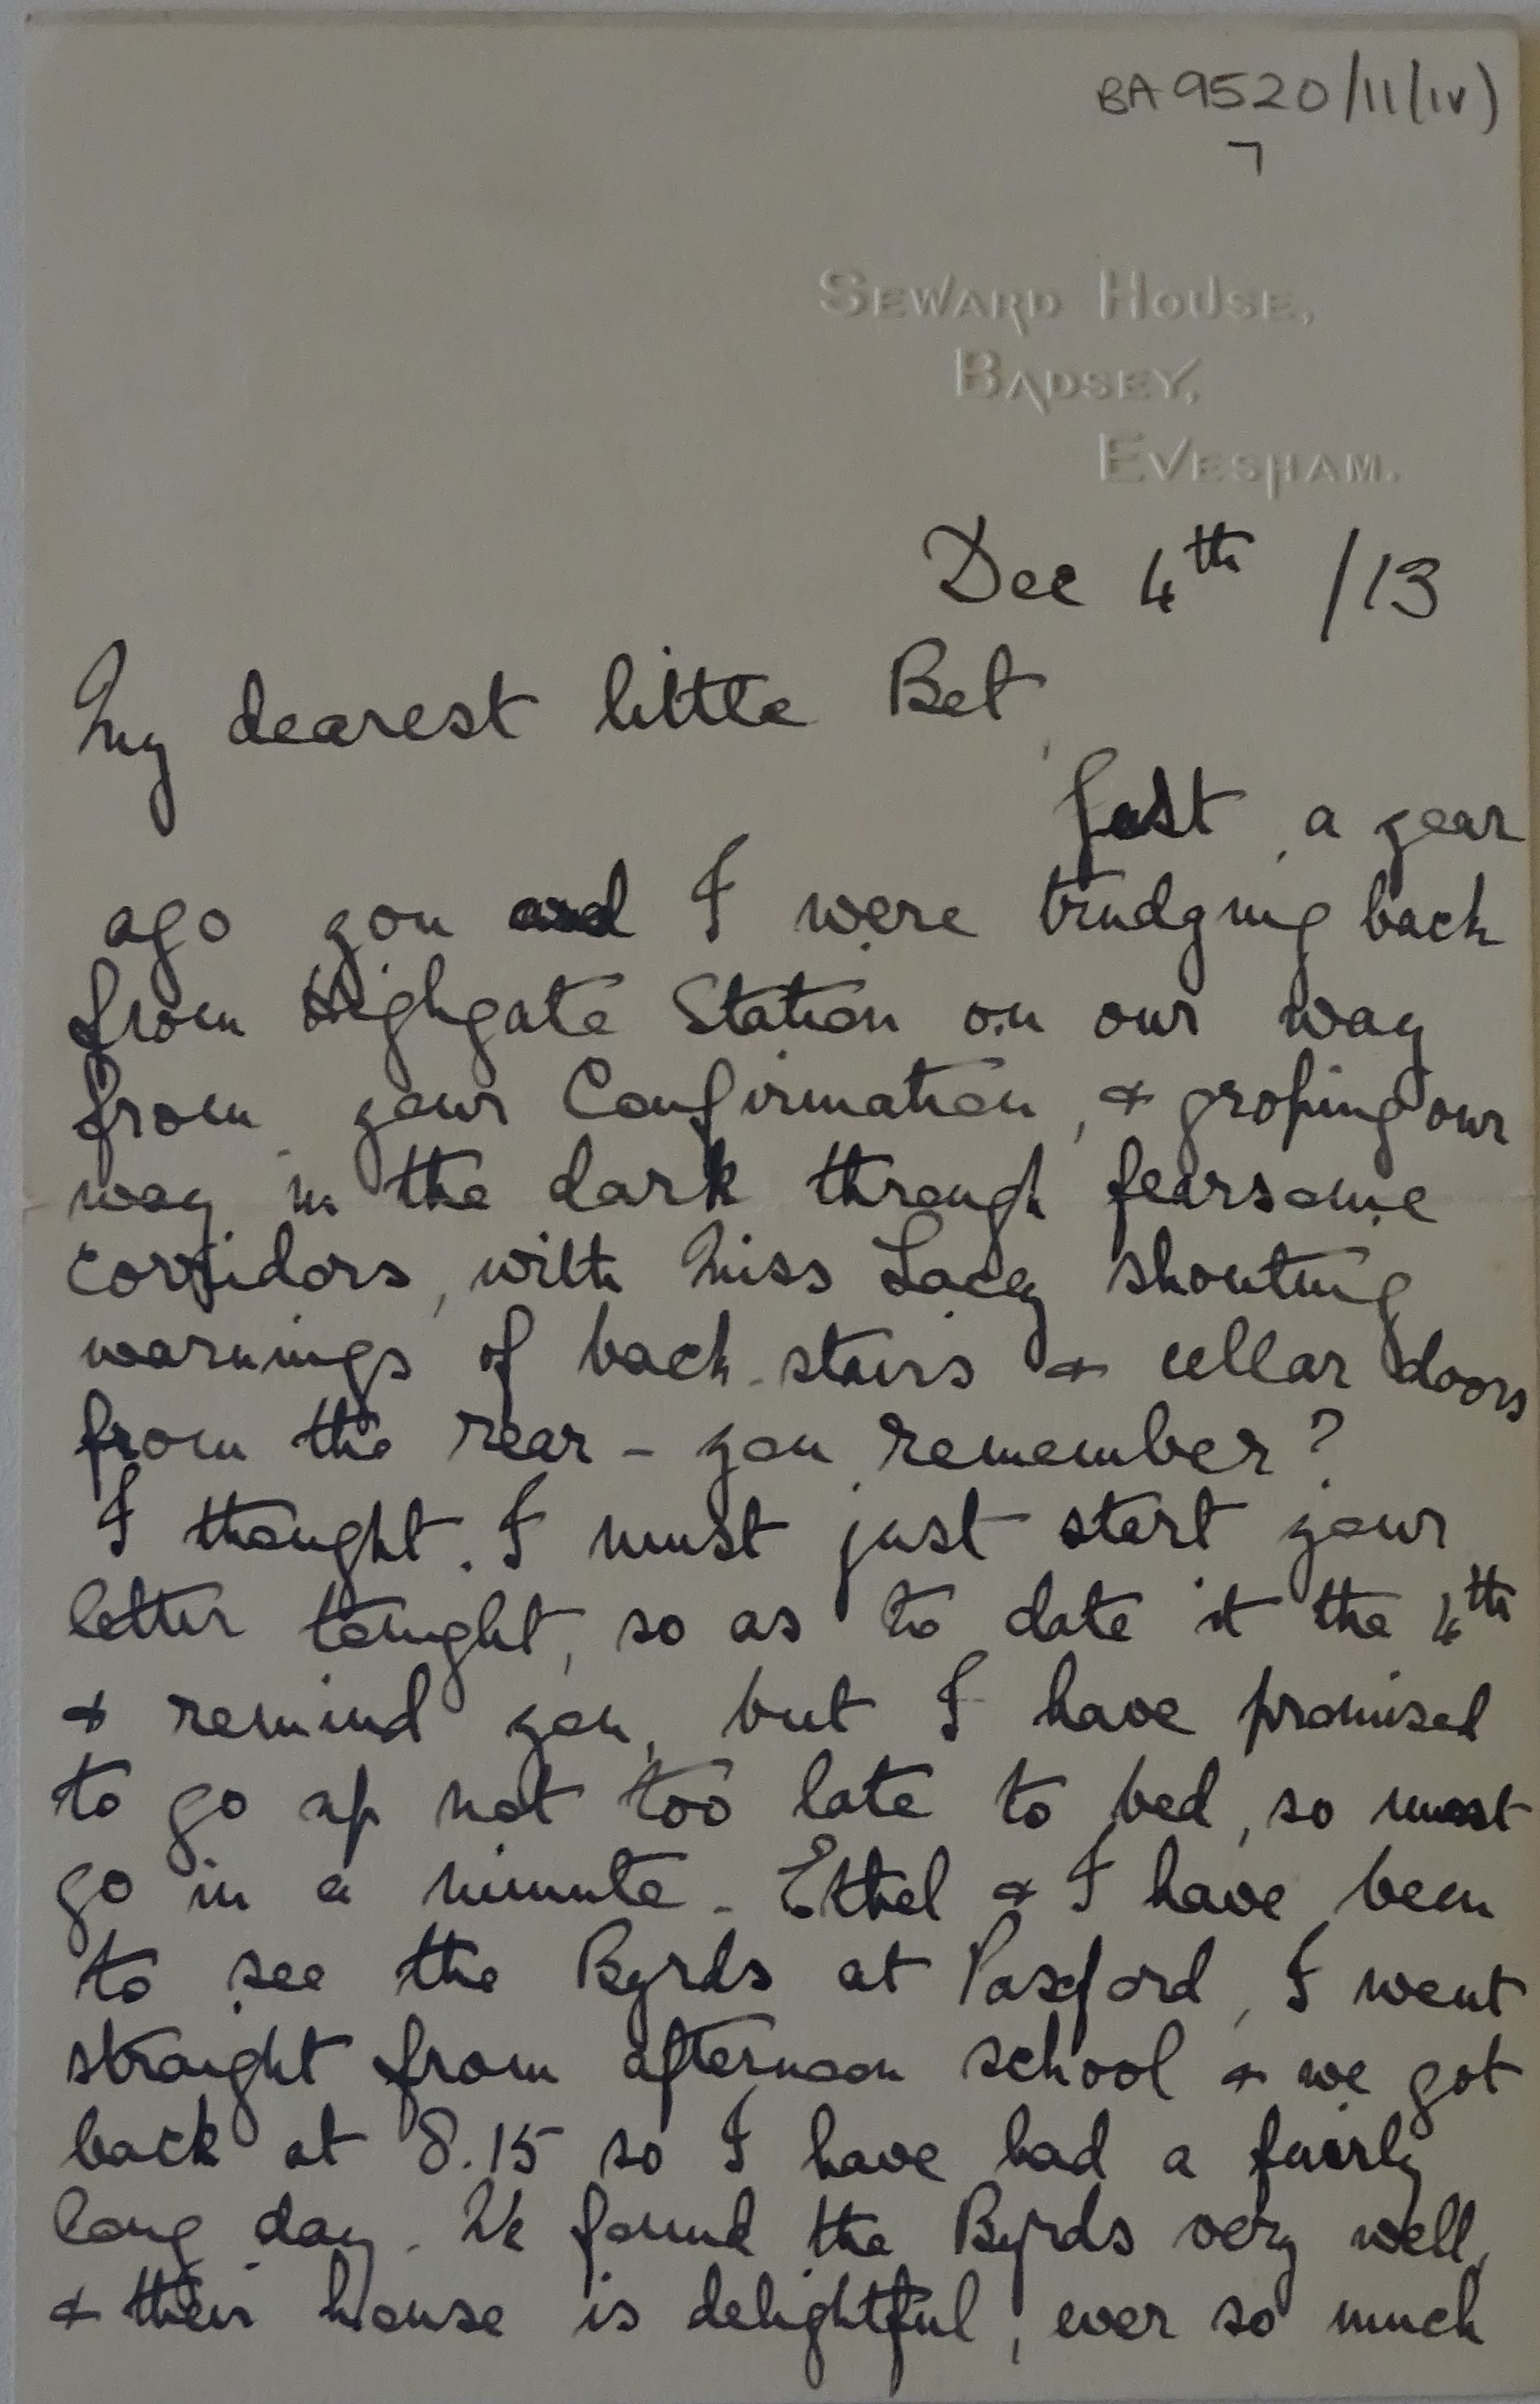 BA 9520/11(iv)
7
SEWARD HOUSE,
BADSEY,
EVESHAM.
Dec 4th /13
My dearest little Bet,
Just a year
ago you and I were trudging back
from Highgate Station on our way
from your Confirmation, & groping our
way in the dark through fearsome
corridors, with Miss Lacey shouting
warnings of back-stairs & cellar doors
from the rear - you remember?
I thought I must just start your
letter tonight, so as to date it the 4th
& remind you, but I have promised
to go up not too late to bed, so must
go in a minute. Ethel & I have been
to see the Byrds at Paxford, I went
straight from afternoon school & we got
back at 8.15 so I have had a fairly
long day. We found the Byrds very well,
& their house is delightful, ever so much